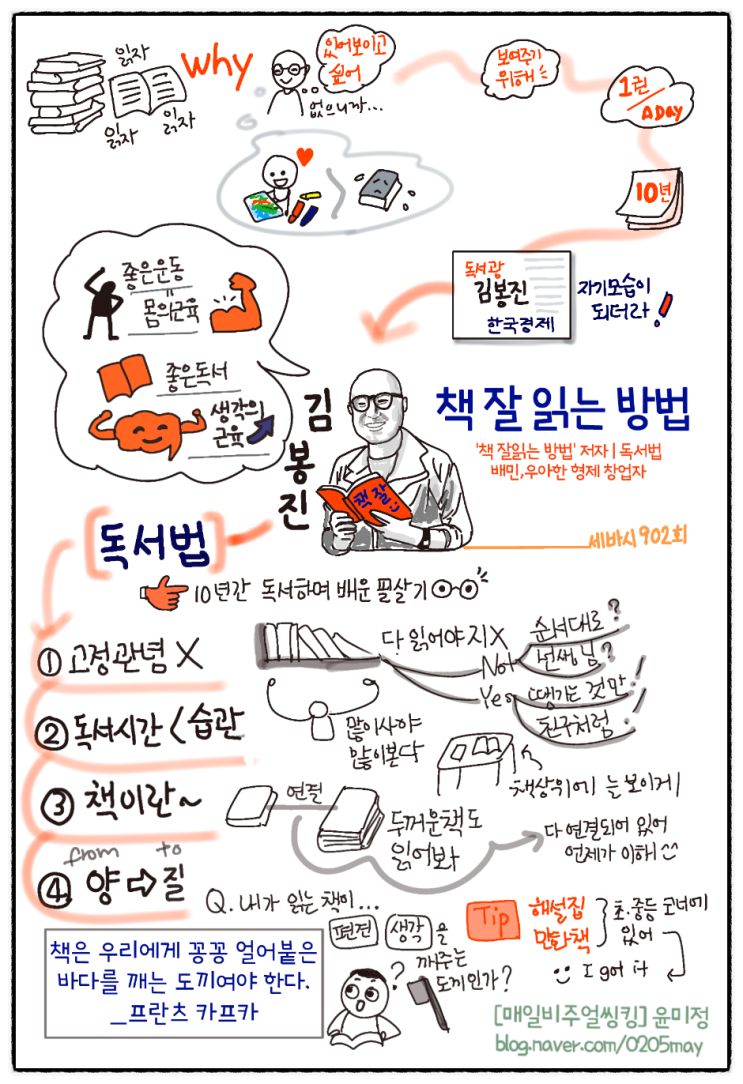 읽자
읽자
읽자
why
있어보이고
싶어
없으니까...
보여주기
위해
1권
/ A DAY
10년
독서광
김봉진
한국경제
자기모습이
되더라!
좋은운동
=
몸의근육
좋은독서
생각의
근육
김봉진
책 잘 읽는 방법
'책 잘읽는 방법' 저자 | 독서법
배민,우아한 형제 창업자
책 잘
세바시 902회
[독서법]
10년간 독서하며 배운 필살기
① 고정관념 X
다 읽어야지 X
Not
순서대로?
선생님?
Yes
땡기는 것만!
친구처럼!
② 독서시간 < 습관
많이사야
많이본다
책상위에 늘 보이게
③ 책이란~
연결
두꺼운책도
읽어봐
다 연결되어 있어
언젠가 이해!
from to
④ 양 ⇨ 질
Q. 내가 읽는 책이...
편견 생각을
깨주는
도끼인가?
?
Tip
해설집
만화책
초.중등 코너에
있어
I got it
책은 우리에게 꽁꽁 얼어붙은
바다를 깨는 도끼여야 한다.
_프란츠 카프카
[매일비주얼씽킹] 윤미정
blog.naver.com/0205may